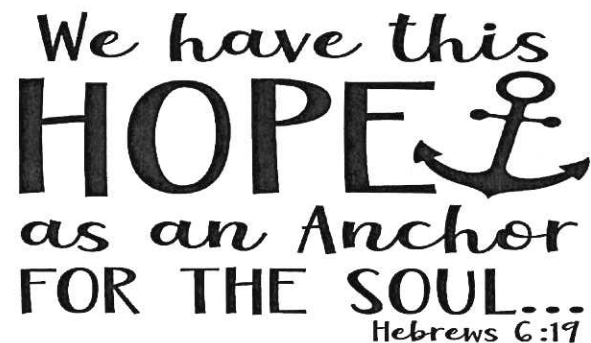 We have this
HOPE
as an Anchor
FOR THE SOUL...
Hebrews 6:19